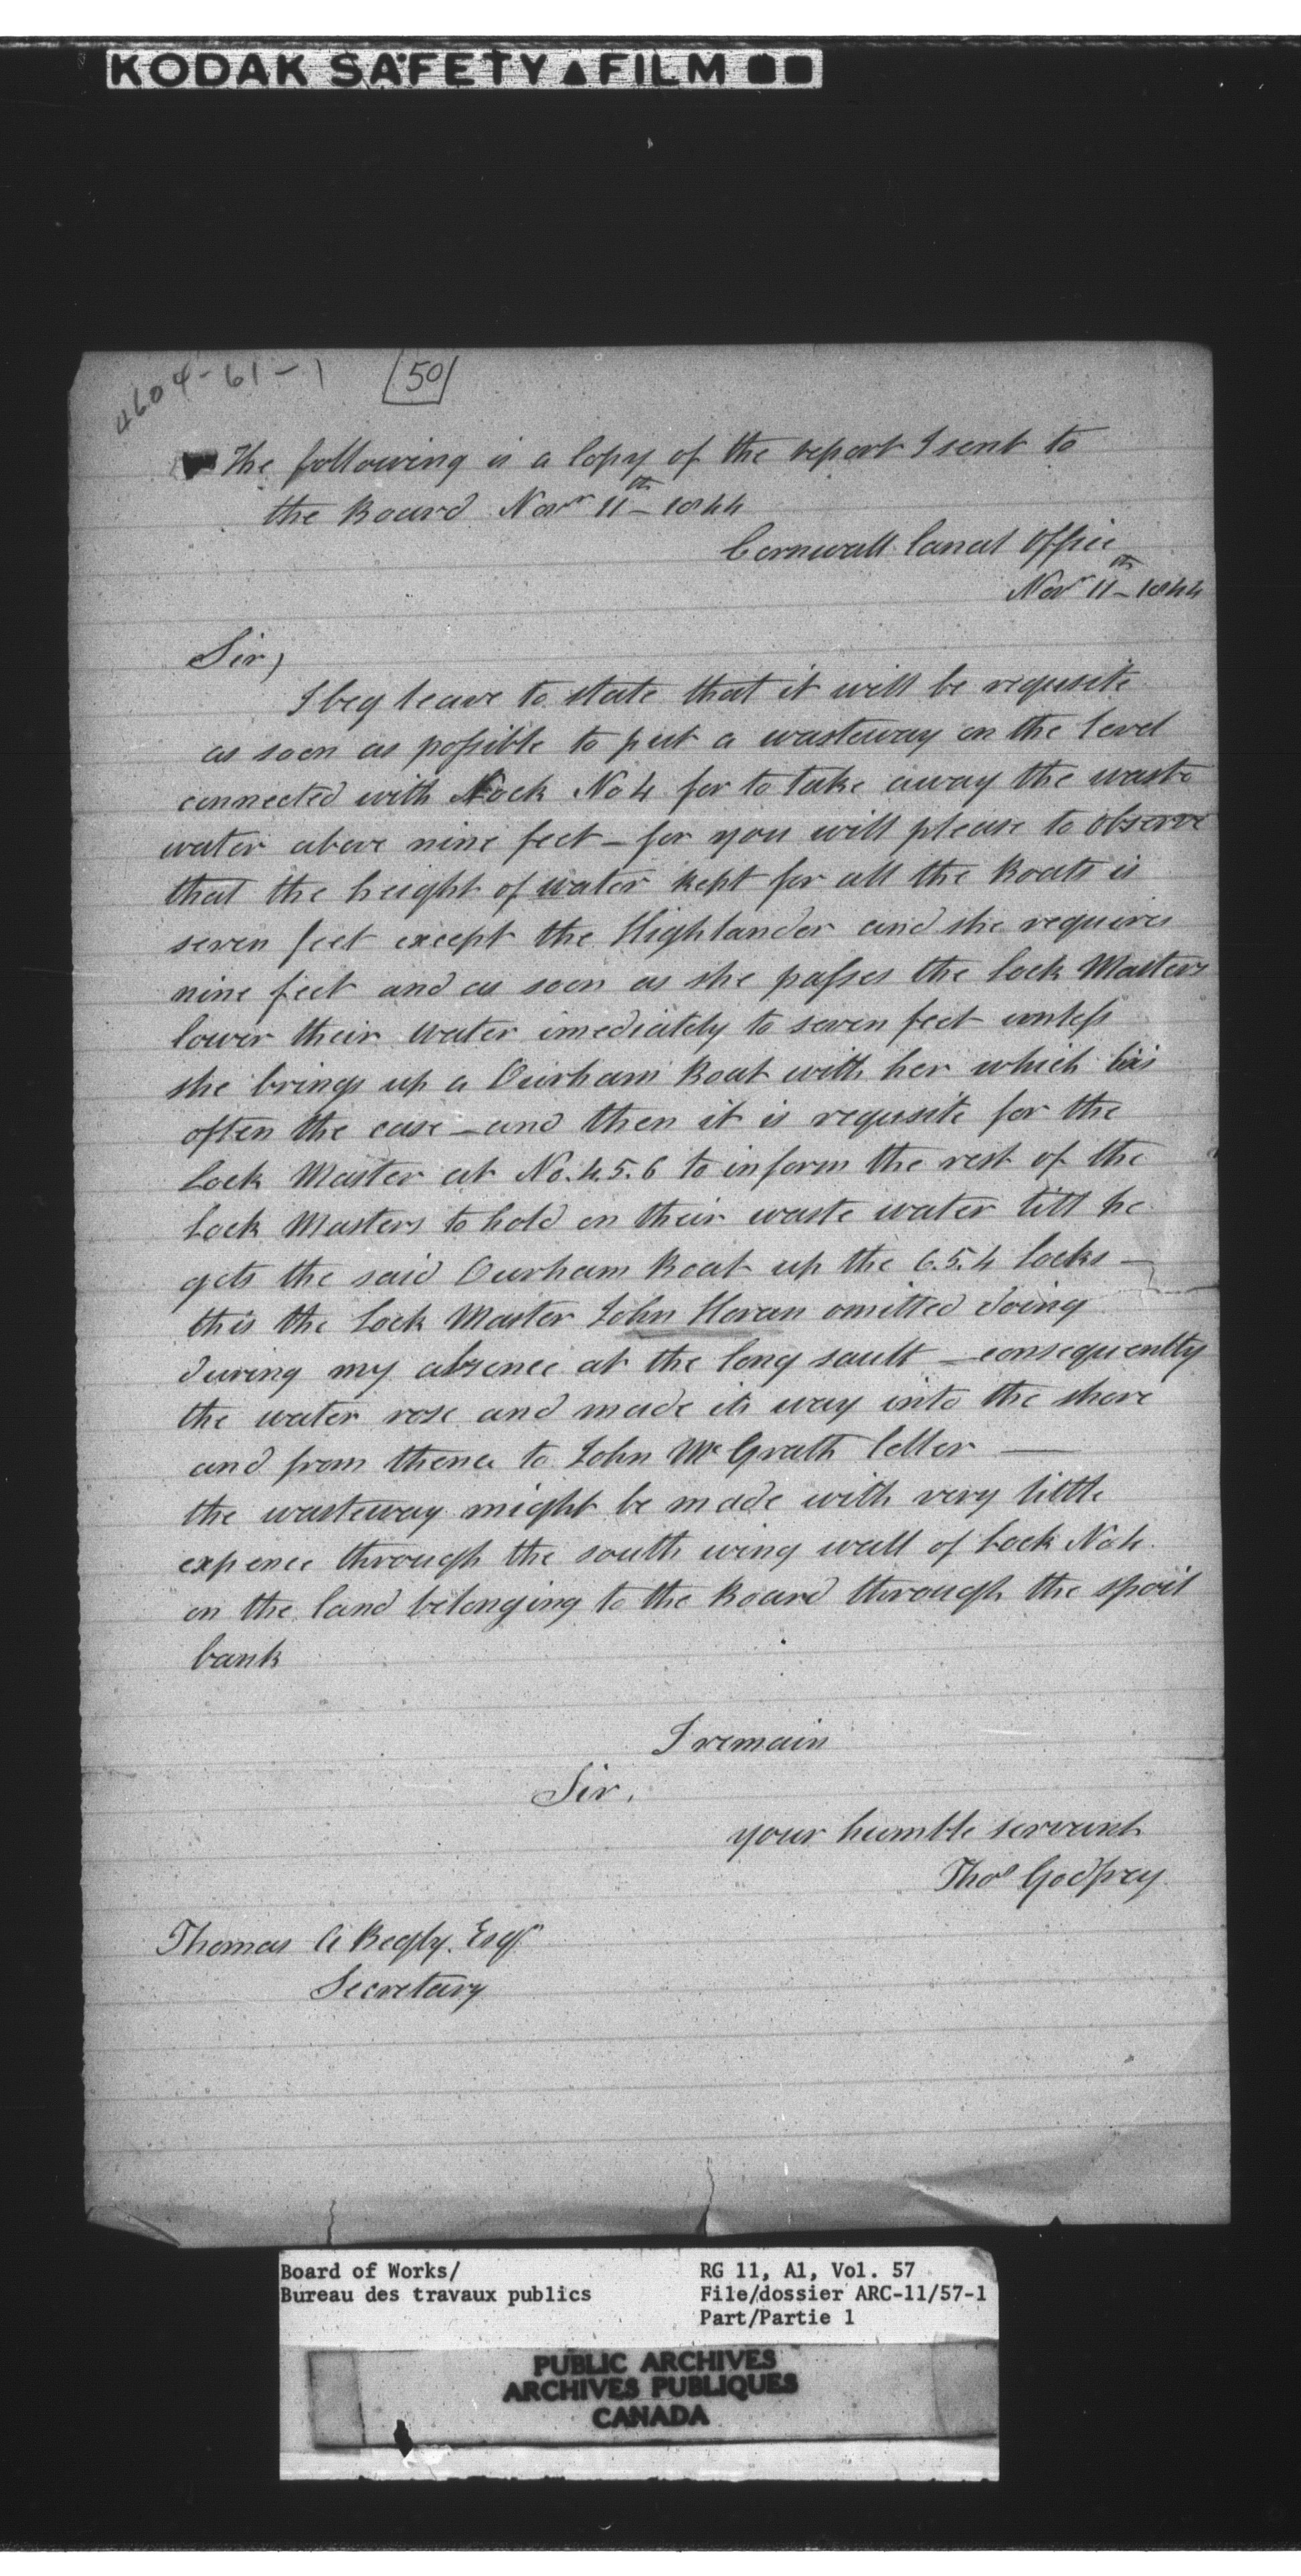 KODAK SAFETY ▲ FILM
4604-61-1
50
The following is a Copy of the report I sent to
the Board Novr 11th - 1844
Cornwall Canal Office
Novr 11th - 1844
Sir,
I beg leave to state that it will be requisite
as soon as possible to put a wasteway on the level
connected with Lock No 4 for to take away the waste
water above nine feet - for you will please to observe
that the height of water kept for all the Boats is
seven feet except the Highlander and she requires
nine feet and as soon as she passes the Lock Masters
lower their water imediately to seven feet unless
she brings up a Durham Boat with her which is
often the case - and then it is requisite for the
Lock Master at No. 4.5.6 to inform the rest of the
Lock Masters to hold on their waste water till he
gets the said Durham Boat up the 6.5.4 Locks -
this the Lock Master John Horan omitted doing
during my absence at the long sault - consequently
the water rose and made its way into the shore
and from thence to John McGrath Celler —
the wasteway might be made with very little
expence through the south wing wall of Lock No 4.
on the land belonging to the Board through the spoil
bank
I remain
Sir,
your humble servant
Thos Godfrey
Thomas A Begly. Esqr
Secretary
Board of Works/
Bureau des travaux publics
RG 11, A1, Vol. 57
File/dossier ARC-11/57-1
Part/Partie 1
PUBLIC ARCHIVES
ARCHIVES PUBLIQUES
CANADA